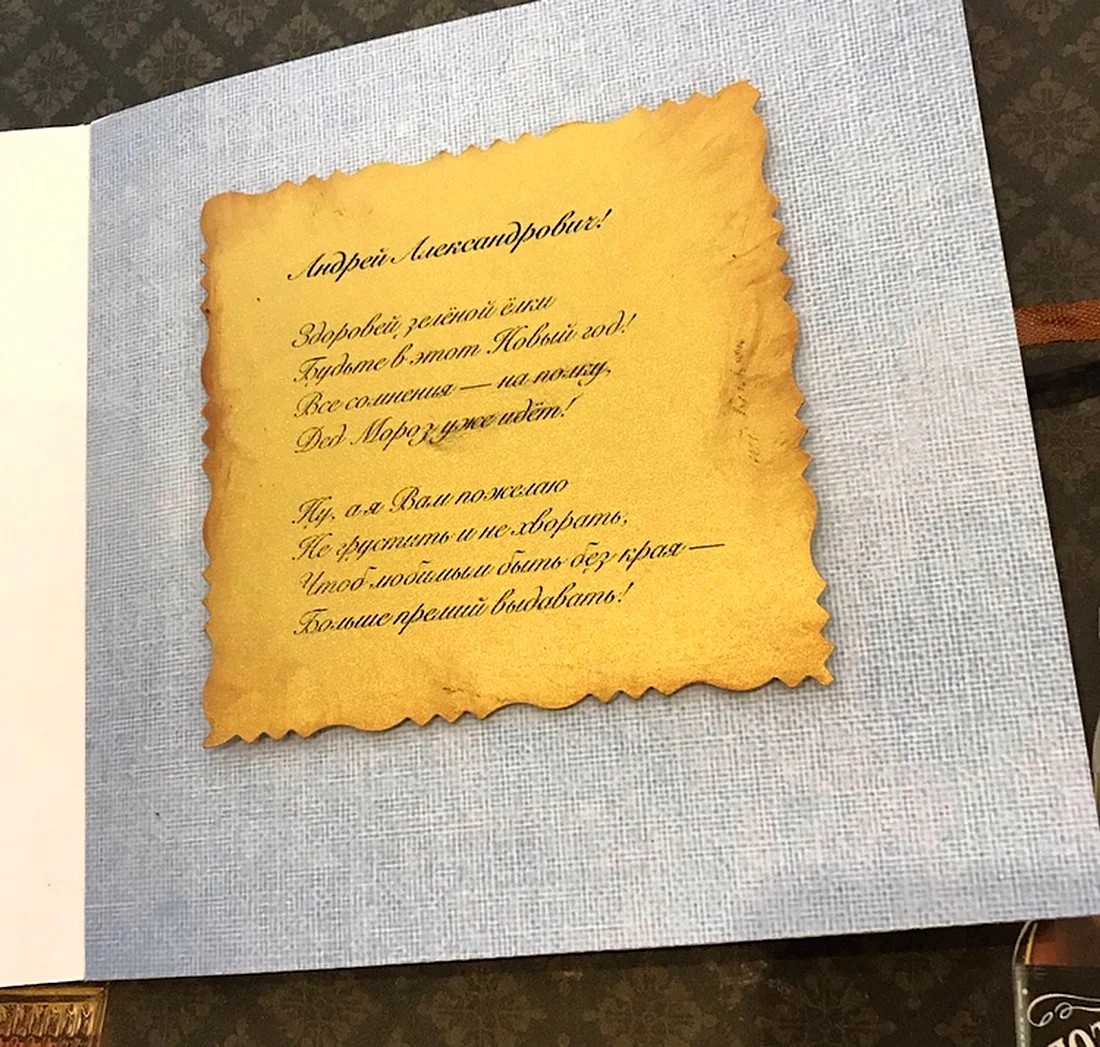 Андрей Александрович!
Здоровей зелёной ёлки
Будьте в этот Новый год!
Все сомнения — на полку,
Дед Мороз уже идёт!
Ну, а я Вам пожелаю
Не грустить и не хворать,
Чтоб любимым быть без края —
Больше премий выдавать!